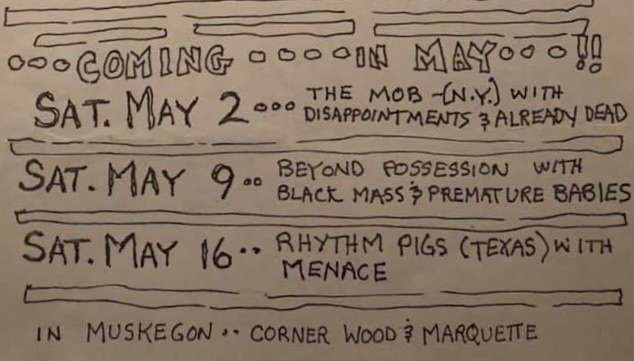 ooo COMING oooo IN MAY ooo!!
SAT. MAY 2 ooo THE MOB -(N.Y.) WITH
DISAPPOINTMENTS & ALREADY DEAD
SAT. MAY 9 .. BEYOND POSSESSION WITH
BLACK MASS & PREMATURE BABIES
SAT. MAY 16 .. RHYTHM PIGS (TEXAS) WITH
MENACE
IN MUSKEGON .. CORNER WOOD & MARQUETTE